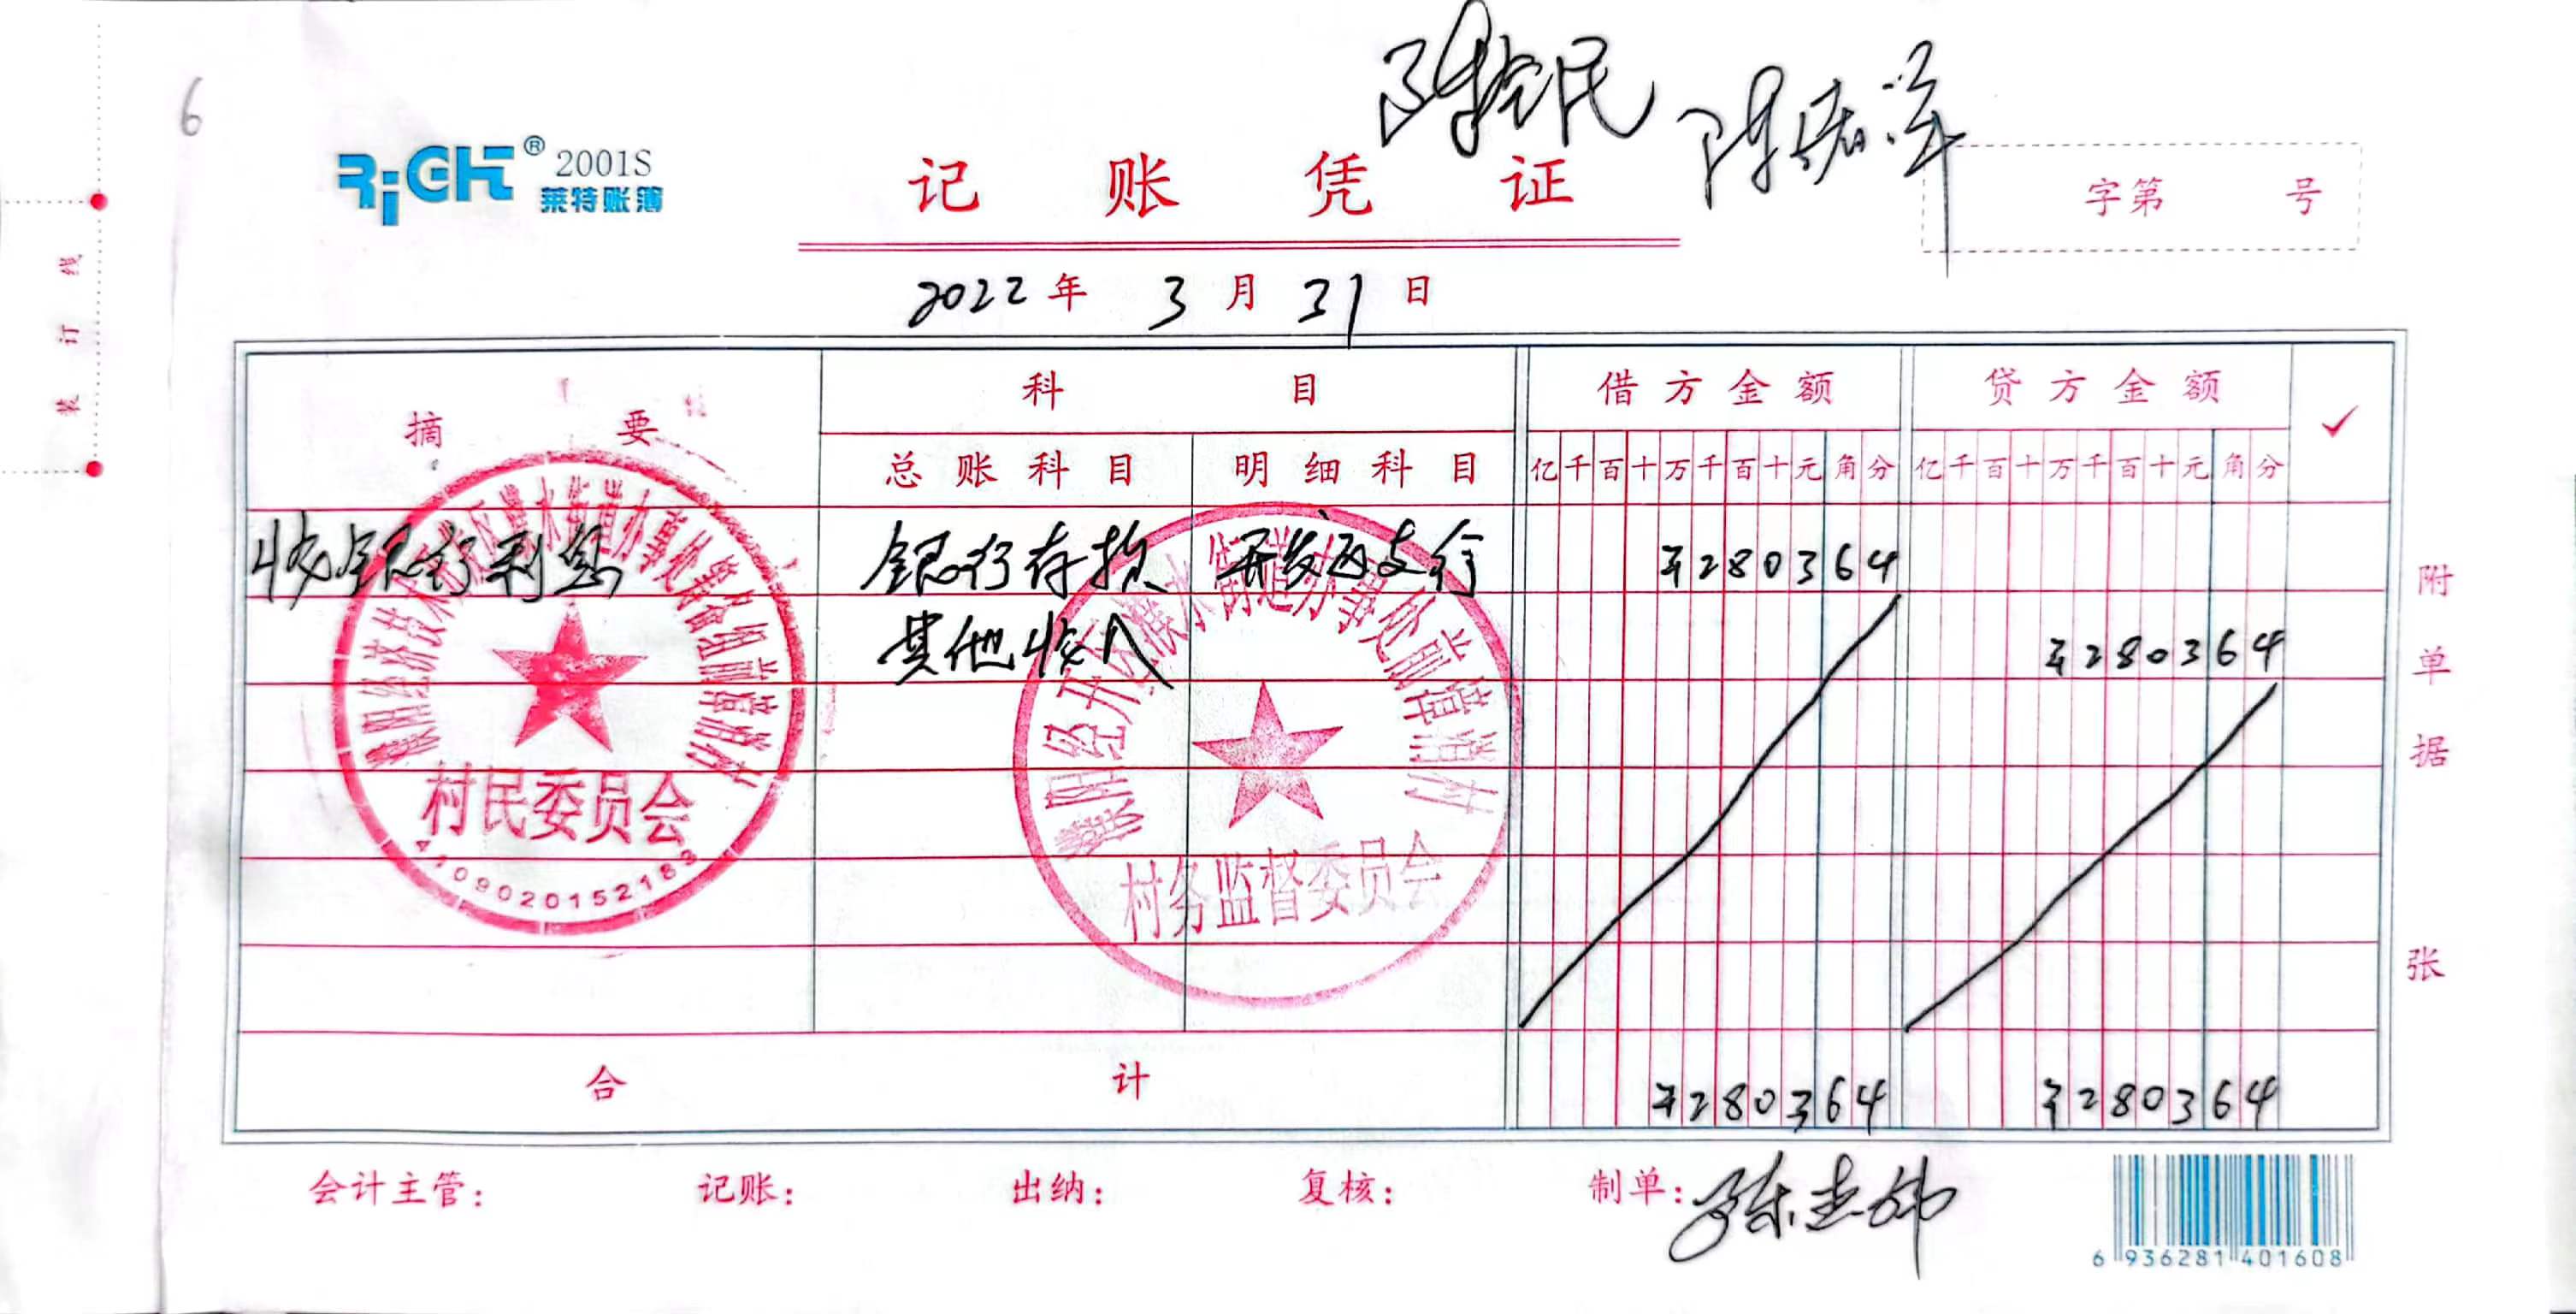 6
RiGHT® 2001S
莱特账簿
记账凭证
字第 号
2022年3月31日
装订线
摘要 科目 借方金额 贷方金额 ✓
总账科目 明细科目 亿千百十万千百十元角分 亿千百十万千百十元角分
收银行利息 银行存款 开发区支行 ¥280364
其他收入 ¥280364
村民委员会
4109020152183
村务监督委员会
附单据 张
合计 ¥280364 ¥280364
会计主管： 记账： 出纳： 复核： 制单：
6 936281 401608